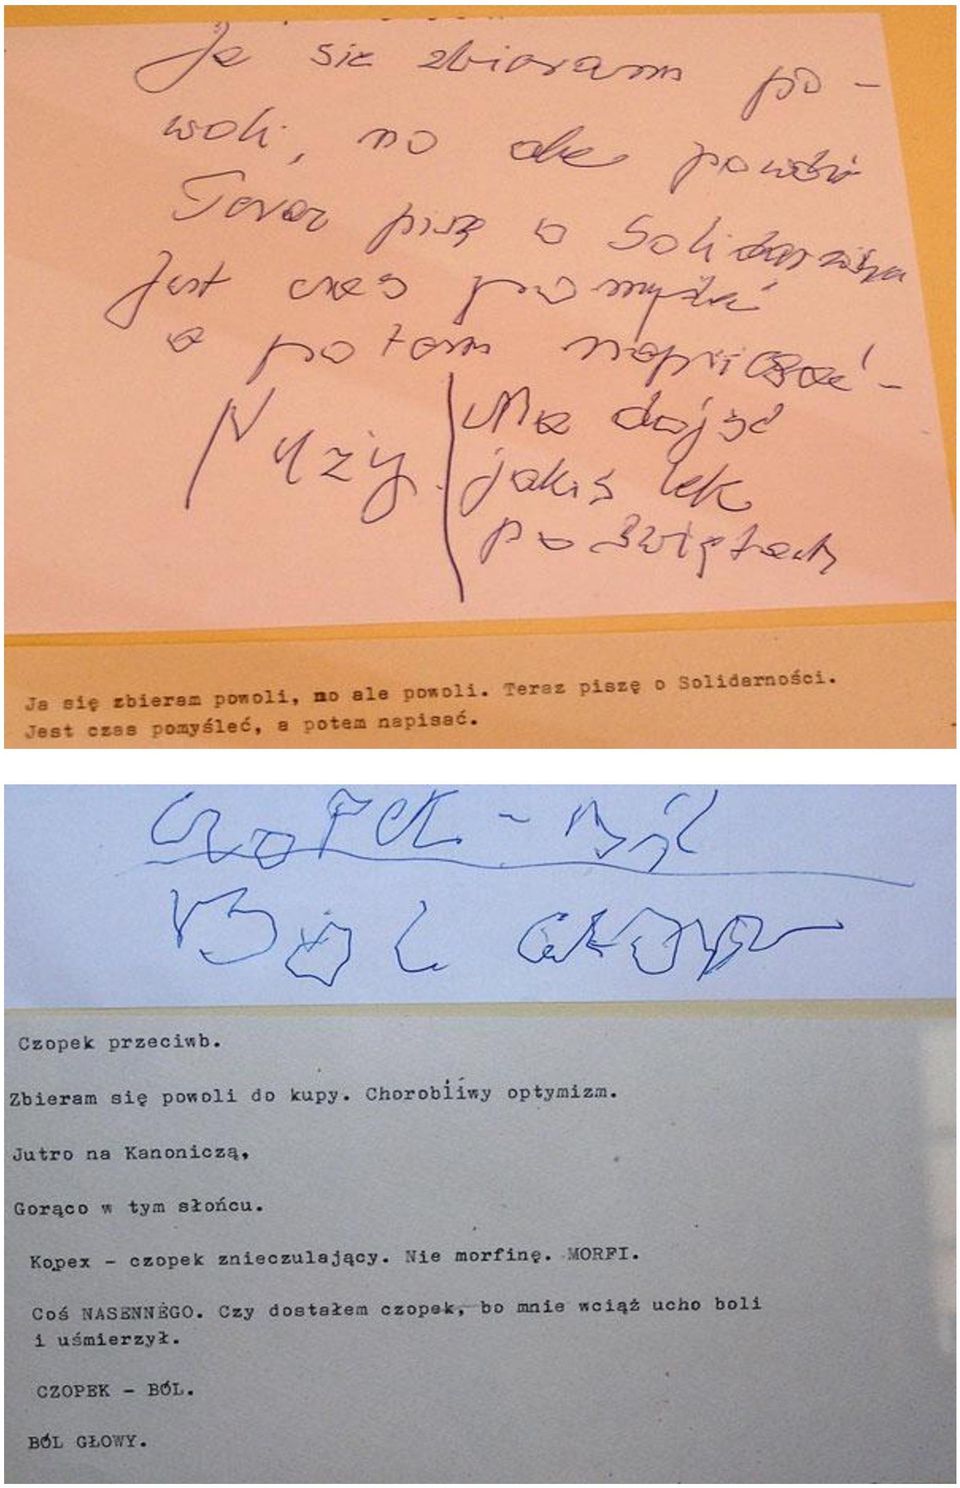 Ja się zbieram po-
woli, no ale powoli
Teraz piszę o Solidarności
Jest czas pomyśleć
a potem napisać -
Nuży. Ma dojść
jakiś lek
po świętach
Ja się zbieram powoli, no ale powoli. Teraz piszę o Solidarności.
Jest czas pomyśleć, a potem napisać.
CzoPEK - Ból
BÓL GŁOWY
Czopek przeciwb.
Zbieram się powoli do kupy. Chorobliwy optymizm.
Jutro na Kanoniczą,
Gorąco w tym słońcu.
Kopex - czopek znieczulający. Nie morfinę. MORFI.
Coś NASENNEGO. Czy dostałem czopek, bo mnie wciąż ucho boli
i uśmierzył.
CZOPEK - BÓL.
BÓL GŁOWY.